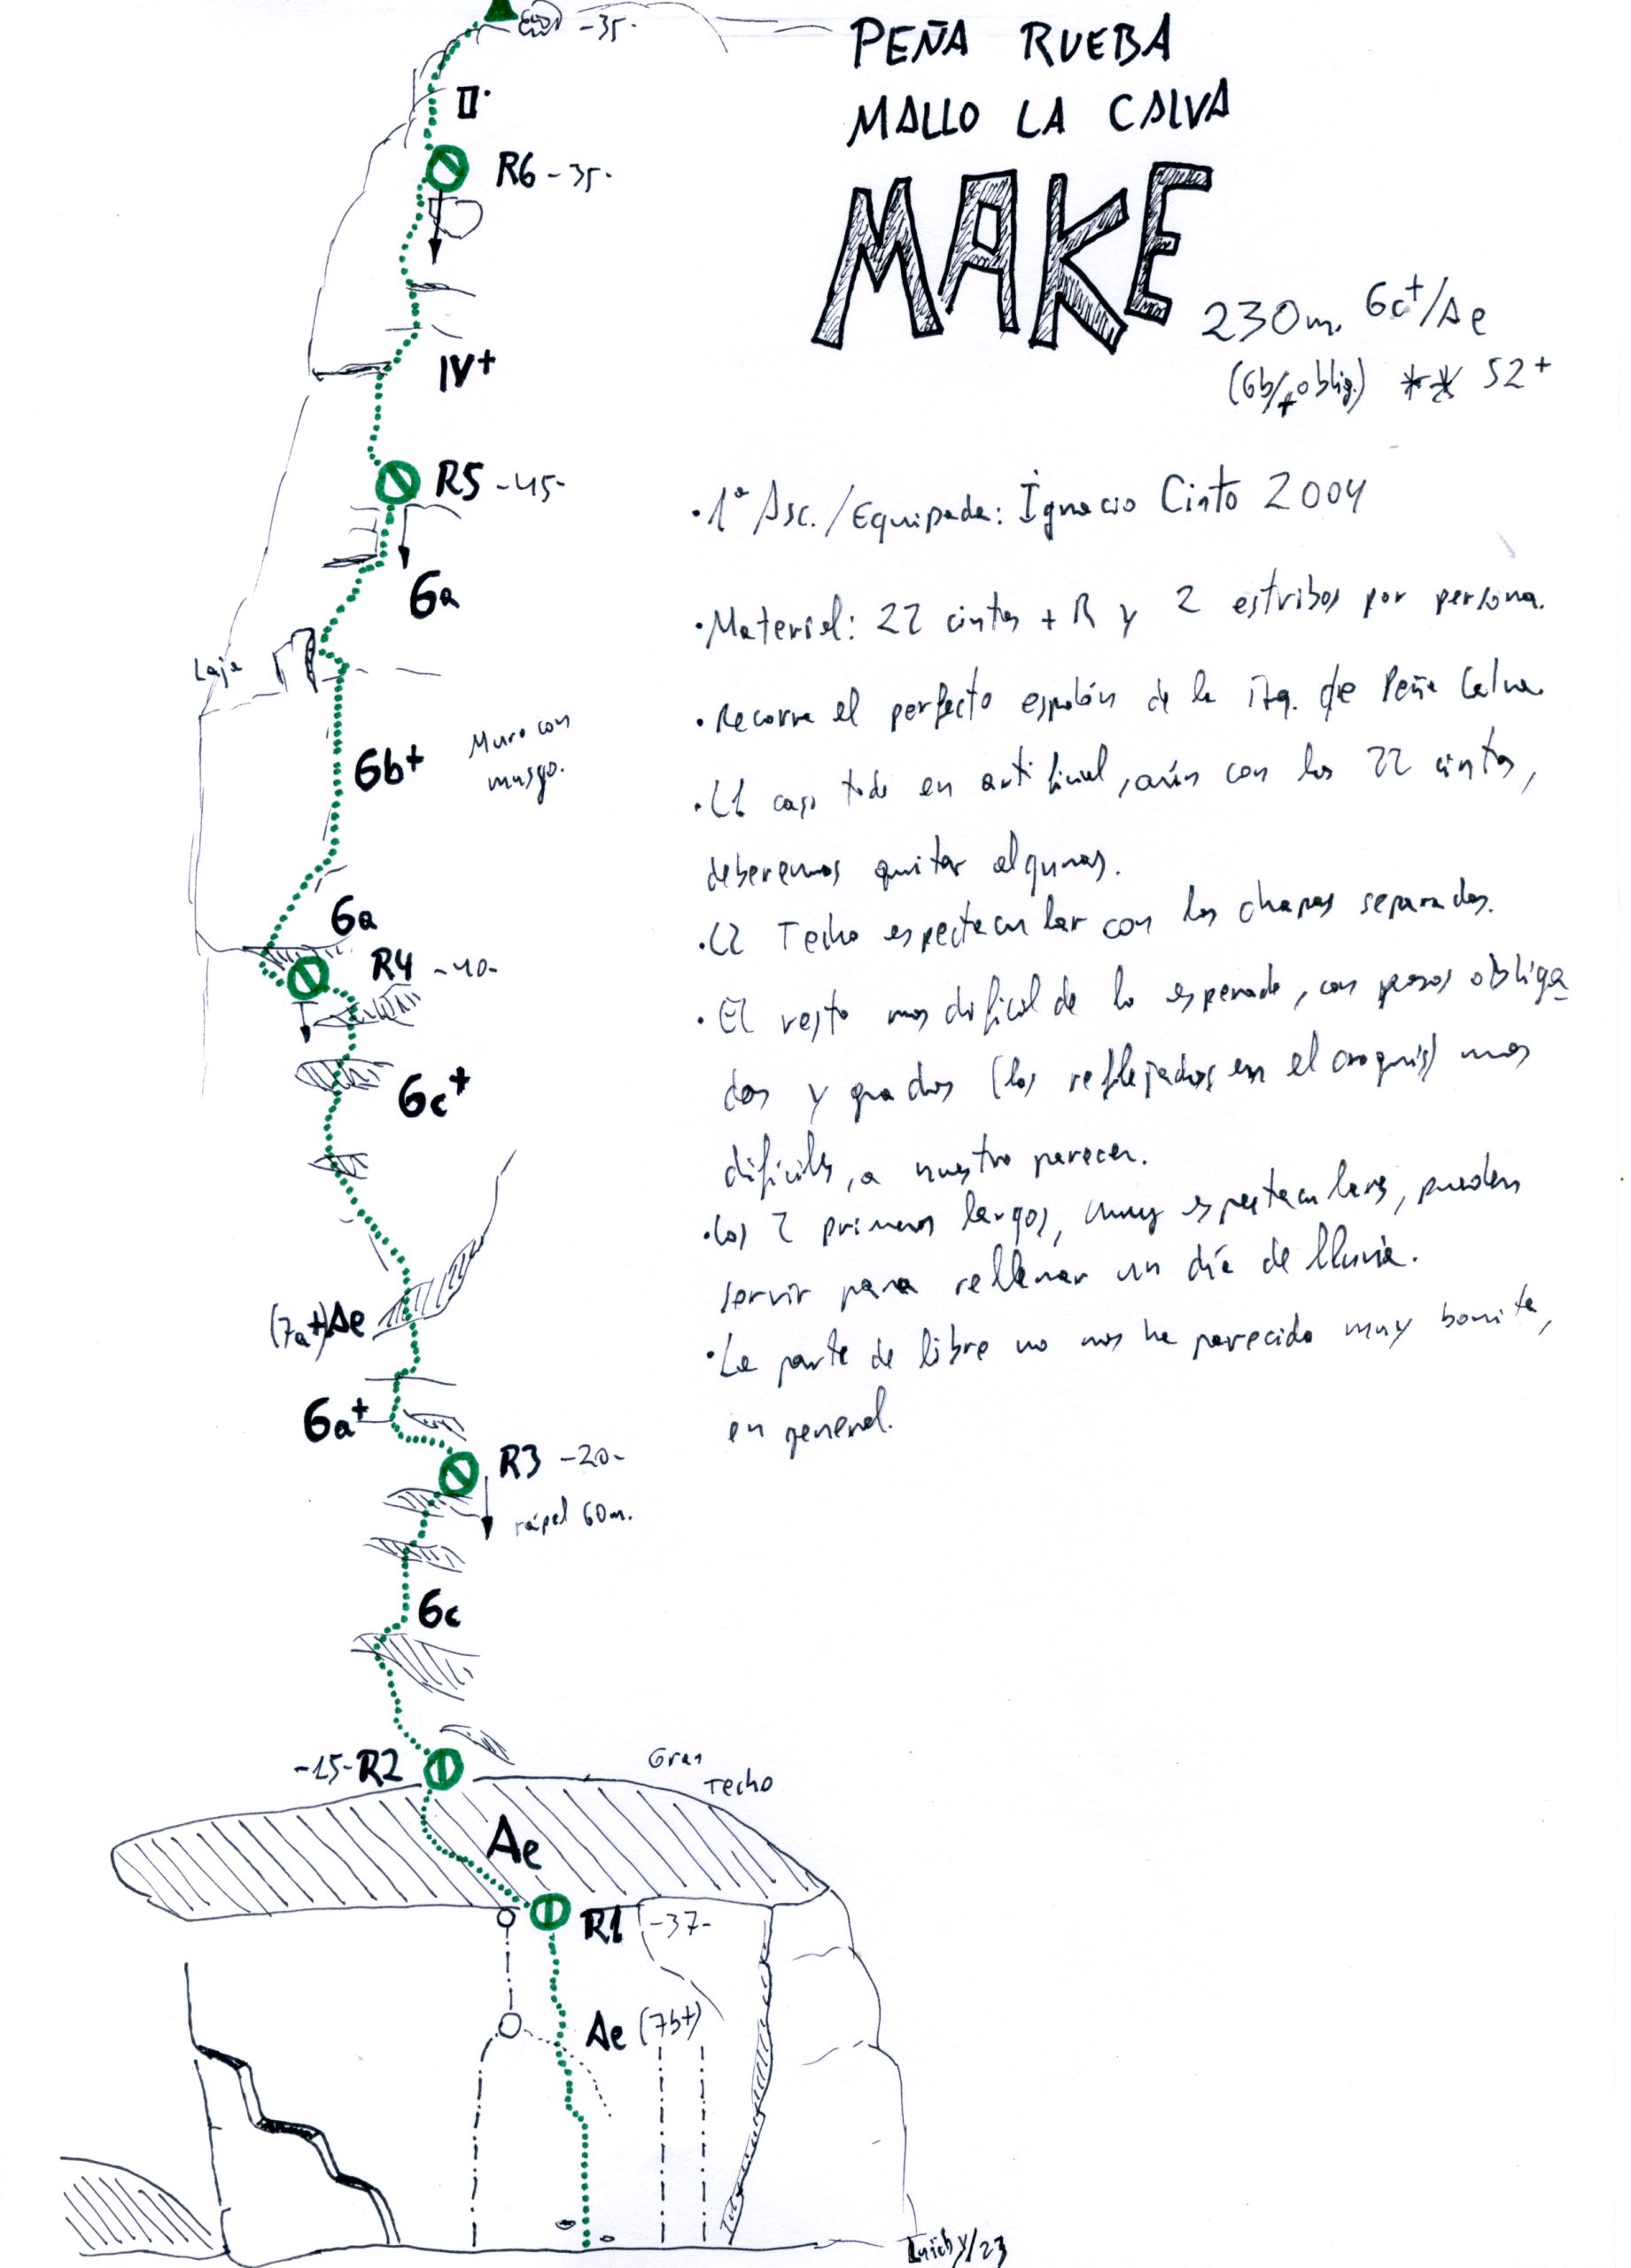 PEÑA RUEBA
MALLO LA CALVA
MAKE
230m. 6c+/Ae
(6b/+ oblig.) ** S2+
• 1ª Asc./Equipada: Ignacio Cinto 2004
• Material: 22 cintas + R y 2 estribos por persona.
• Recorre el perfecto espolón de la izq. de Peña Calva.
• L1 casi todo en artificial, aún con las 22 cintas,
deberemos quitar algunas.
• L2 Techo espectacular con las chapas separadas.
• El resto mas dificil de lo esperado, con pasos obliga
dos y grados (los reflejados en el croquis) mas
difíciles, a nuestro parecer.
• Los 2 primeros largos, muy espectaculares, pueden
servir para rellenar un día de lluvia.
• La parte de libre no nos ha parecido muy bonita,
en general.
-35-
II·
R6 -35-
IV+
R5 -45-
6a
Laja
6b+
Muro con
musgo.
6a
R4 -40-
6c+
(7a+)Ae
6a+
R3 -20-
rápel 60m.
6c
-15- R2
Gran
Techo
Ae
R1 -37-
Ae (7b+)
Luichy/23